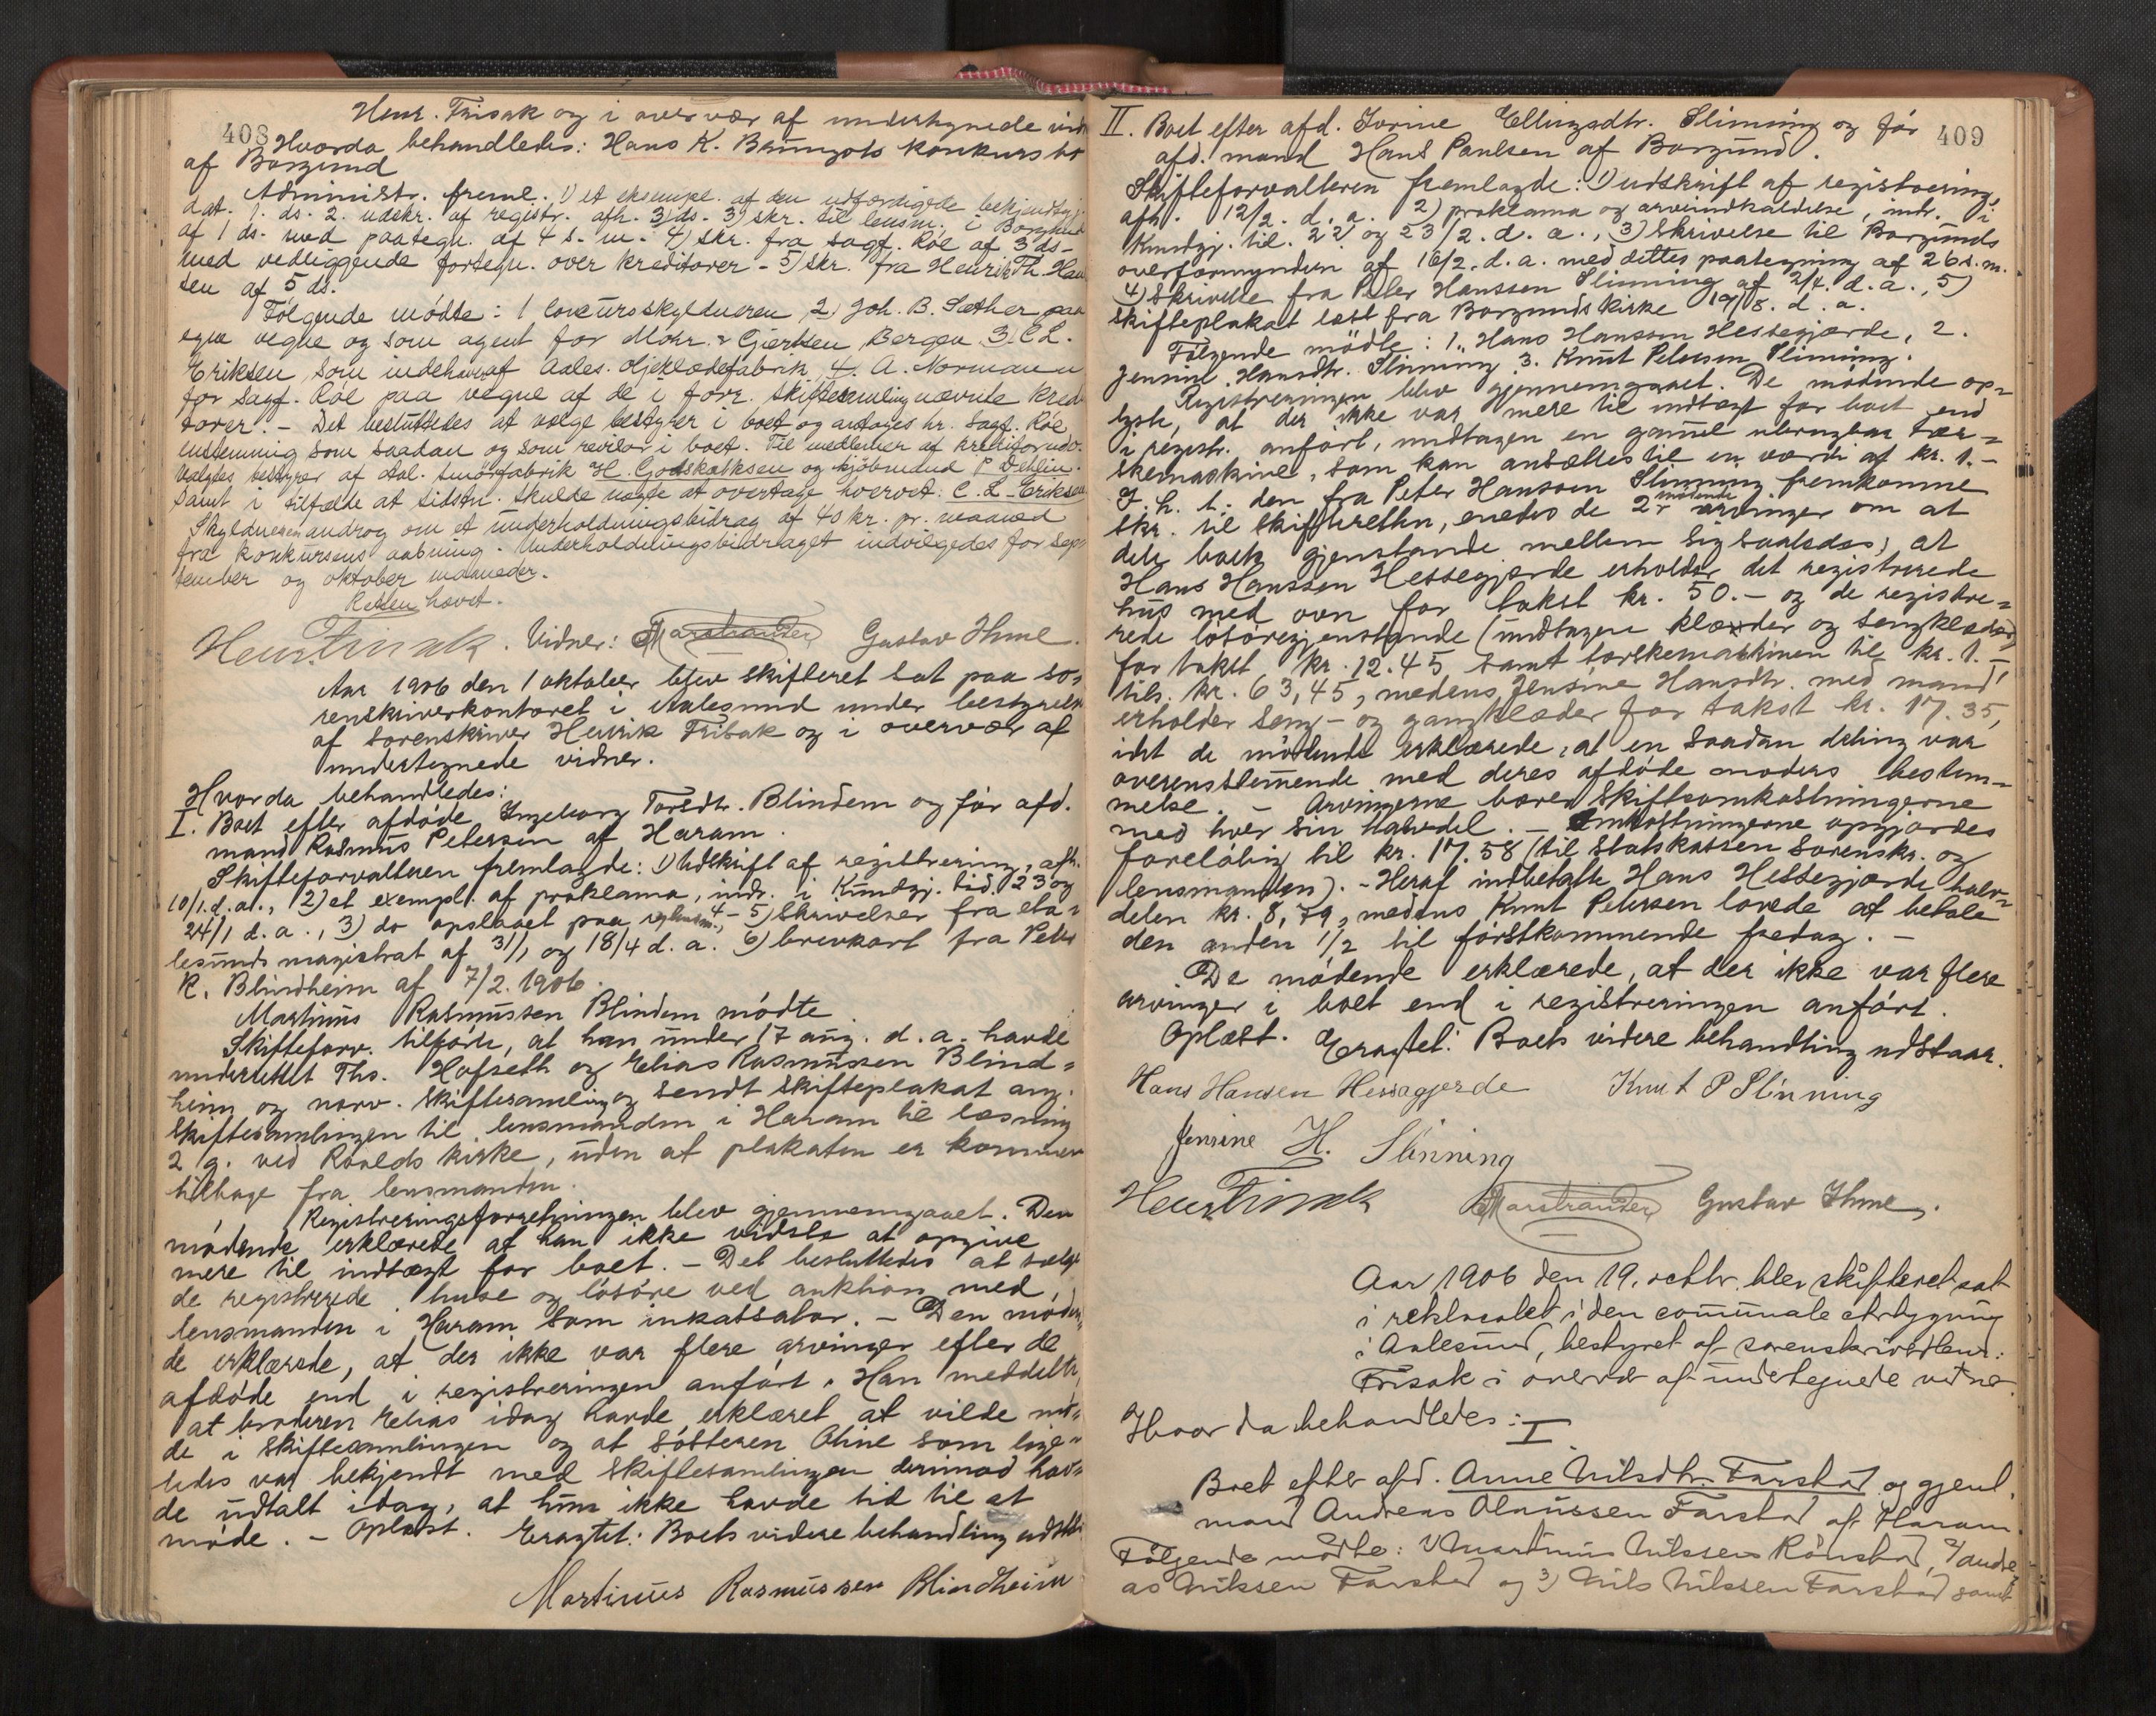 408
Henr. Frisak og i overvær af undertegnede vid
Hvorda behandledes: Hans K. Brungots konkursbo
af Borgund
Administr. freml. 1) et eksempl. af den udfærdigede bekjendtgj.
dat. 1. ds. 2. udskr. af registr. afh. 3 ds. 3) skr. til lensm. i Borgund
af 1 ds. med paategn. af 4 s. m. 4) skr. fra sagf. Röe af 3 ds -
med vedliggende fortegn. over kreditorer - 5) skr. fra Henrik Th. Han
sen af 5 ds.
Følgende mødte: 1 concursskyldneren 2) Joh. B. Sæther paa
egne vegne og som agent for Mohr & Gjertsen Bergen 3) C L.
Eriksen som indehaver af Aales. Oljeklædefabrik 4. A. Normann
for Sagf. Röe paa vegne af de i forr. skiftesamling nævnte kredi
torer. - Det besluttedes at vælge bestyrer i boet og antages hr. Sagf. Röe
enstemmig som saadan og som revisor i boet. Til medlemer af kreditorudv.
valgtes bestyrer af Aal. Smörfabrik H. Godskalksen og kjöbmand P Dahlin.
samt i tilfælde at sidstn. skulde nægte at overtage hvervet: C. L. Eriksen
Skyldneren androg om et underholdningsbidrag af 40 kr. pr. maaned
fra konkursens aabning. Underholdningsbidraget indvilgedes for sep
tember og oktober maaneder.
Retten hævet.
Henr. Frisak. Vidner: Marstrander Gustav Ihme.
Aar 1906 den 1 oktober blev skifteret sat paa so-
renskriverkontoret i Aalesund under bestyrelse
af sorenskriver Henrik Frisak og i overvær af
undertegnede vidner.
Hvorda behandledes:
I. Boet efter afdøde Ingeborg Toresdtr. Blindem og før afd.
mand Rasmus Petersen af Haram.
Skifteforvalteren fremlagde: 1) Udskrift af registrering, afh.
10/1. d. a., 2) et exempl. af proklama, indr. i Kundgj. tid. 23 og
24/1 d. a., 3) do opslaaet paa 4 - 5) Skrivelser fra Aa=
lesunds magistrat af 31/1 og 18/4 d. a. 6) brevkort fra Peter
R. Blindheim af 7/2. 1906.
Martinus Rasmussen Blindem mødte
Skifteforv. tilførte, at han under 17 aug. d. a. havde
underrettet Ths. Hofseth og Elias Rasmussen Blind=
heim og nærv. skiftesamling og sendt skifteplakat ang.
skiftesamlingen til lensmanden i Haram til læsning
2 g. ved Roalds kirke, uden at plakaten er kommen
tilbage fra lensmanden.
Registreringsforretningen blev gjennemgaaet. Den
mødende erklærede at han ikke vidste at opgive
mere til indtægt for boet. - Det besluttedes at sælge
de registrerede huse og løsøre ved auktion med
lensmanden i Haram som inkassator. - Den møden
de erklærede, at der ikke var flere arvinger efter de
afdøde end i registreringen anført. Han meddelte,
at broderen Elias idag havde erklæret at vilde mø=
de i skiftesamlingen og at søsteren Oline som lige=
ledes var bekjendt med skiftesamlingen derimod hav=
de udtalt idag, at hun ikke havde tid til at
møde. - Oplæst. Eragtet: Boets videre behandling udstaar
Martinus Rasmussen Blindheim
409
II. Boet efter afd. Sorine Ellingsdtr. Slinning og før
afd. mand Hans Paulsen af Borgund.
Skifteforvalteren fremlagde: 1) udskrift af registrering,
afh. 12/2. d. a. 2) proklama og arveindkaldelse, indr. i
Kundgj. tid. 22 og 23/2. d. a., 3) Skrivelse til Borgunds
overformynderi af 16/2. d. a. med dettes paategning af 26 s. m.
4) Skrivelse fra Peter Hanssen Slinning af 2/4. d. a., 5)
skifteplakat læst fra Borgunds kirke 19/8. d. a.
Følgende mødte: 1. Hans Hansson Hessegjærde, 2.
Jensine Hansdtr. Slinning 3. Knut Petersen Slinning.
Registreringen blev gjennemgaaet. De mødende op=
lyste, at der ikke var mere til indtægt for boet end
i registr. anført, undtagen en gamel ubrugbar tær=
skemaskine, som kan ansættes til en værdi af kr. 1.-
I. h. t. den fra Peter Hansson Slinning fremkomne
skr. til skifteretten, enedes de 2 mødende arvinger om at
dele boets gjenstande mellem sig saaledes, at
Hans Hanssen Hessegjærde erholder det registrerede
hus med ovn for takst kr. 50.- og de registre=
rede løsøregjenstande (undtagen klæder og sengklæder)
for takst kr. 12.45 samt tærskemaskinen til kr. 1.-
tils. kr. 63,45, medens Jensine Hansdtr. med mand
erholder seng- og gangklæder for takst kr. 17.35,
idet de mødende erklærede, at en saadan deling var
overensstemmende med deres afdøde moders bestem=
melse. - Arvingerne bærer skifteomkostningerne
med hver sin halvdel. - Omkostningerne opgjordes
foreløbig til kr. 17.58 (til statskassen sorenskr. og
lensmanden). - Heraf indbetalte Hans Hessegjærde halv=
delen kr. 8,79, medens Knut Petersen lovede at betale
den anden 1/2 til førstkommende fredag. -
De mødende erklærede, at der ikke var flere
arvinger i boet end i registreringen anført.
Oplæst. Eragtet: Boets videre behandling udstaar.
Hans Hansen Hessagjerde Knut P Slinning
Jensine H. Slinning
Henr. Frisak Marstrander Gustav Ihme.
Aar 1906 den 19. octbr. blev skifteret sat
i retslocalet i den communale etbygning
i Aalesund, bestyret af sorenskriver Henr.
Frisak i overvær af undertegnede vidne
Hvor da behandledes: I
Boet efter afd. Anne Nilsdtr. Farstad og gjenl.
mand Andreas Olaussen Farstad af Haram.
Følgende mødte: 1) Martinus Nilssen Rønstad, 2) Andre
as Nilssen Farstad og 3) Nils Nilssen Farstad samt